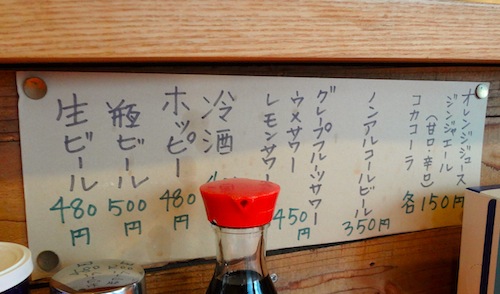 オレンジジュース
ジンジャエール
(甘口・辛口)
コカコーラ
各150円
ノンアルコールビール
350円
グレープフルーツサワー
ウメサワー
レモンサワー
450円
冷酒
ホッピー
480円
瓶ビール
500円
生ビール
480円